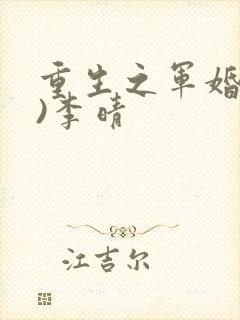 重生之军婚
)李晴
江吉尔